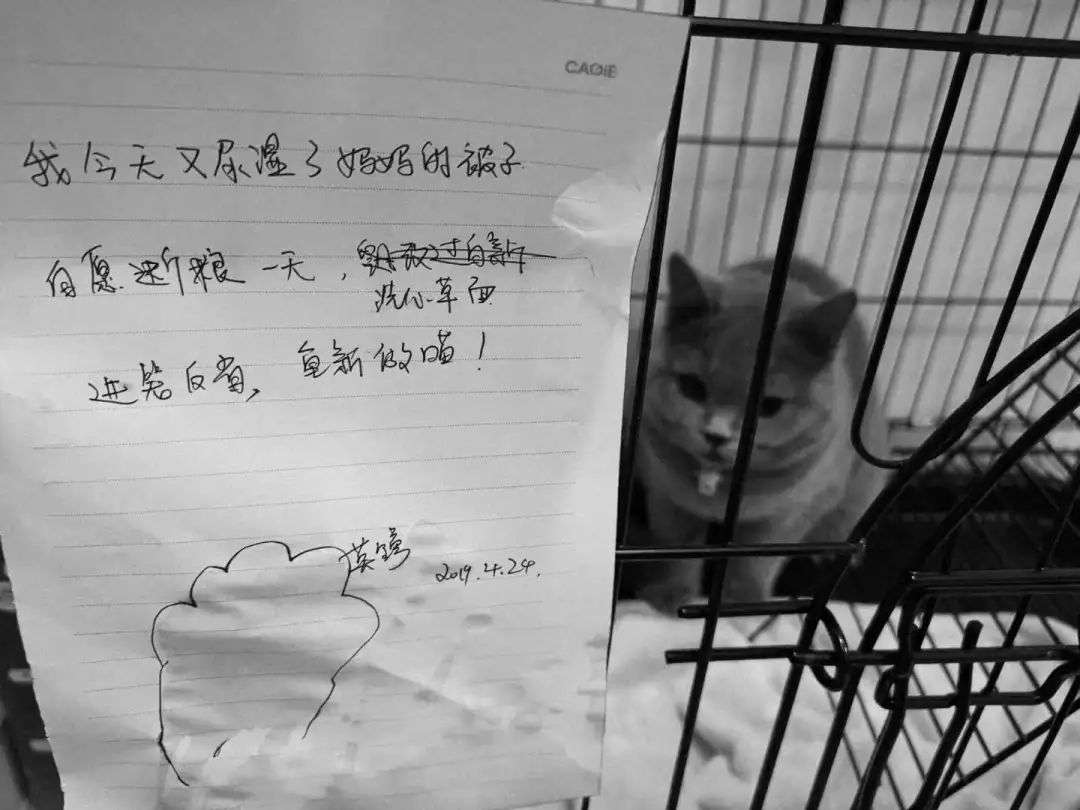 CAGIE
我今天又尿湿了妈妈的被子
自愿断粮一天,改过自新
洗心革面
进笼反省,重新做喵!
英
2019.4.24.